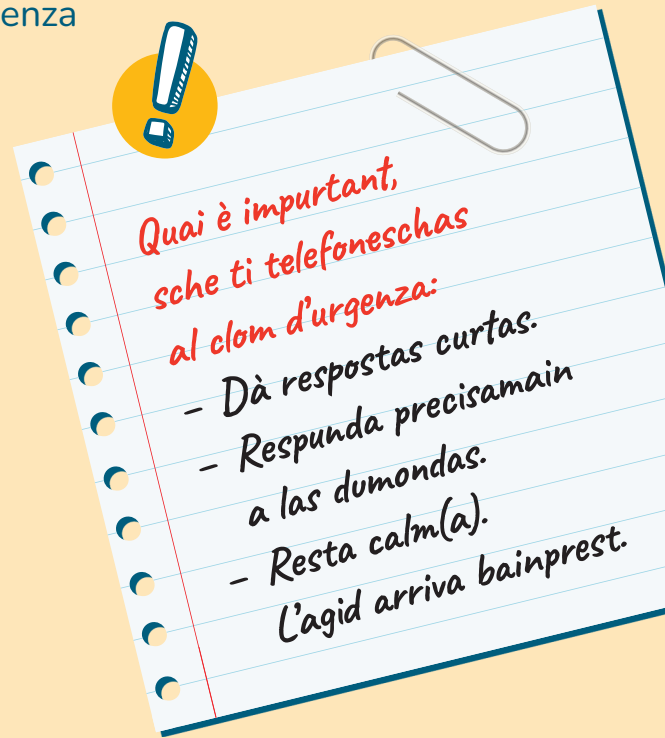 enza
Quai è impurtant,
sche ti telefoneschas
al clom d'urgenza:
– Dà respostas curtas.
– Respunda precisamain
a las dumondas.
– Resta calm(a).
L'agid arriva bainprest.